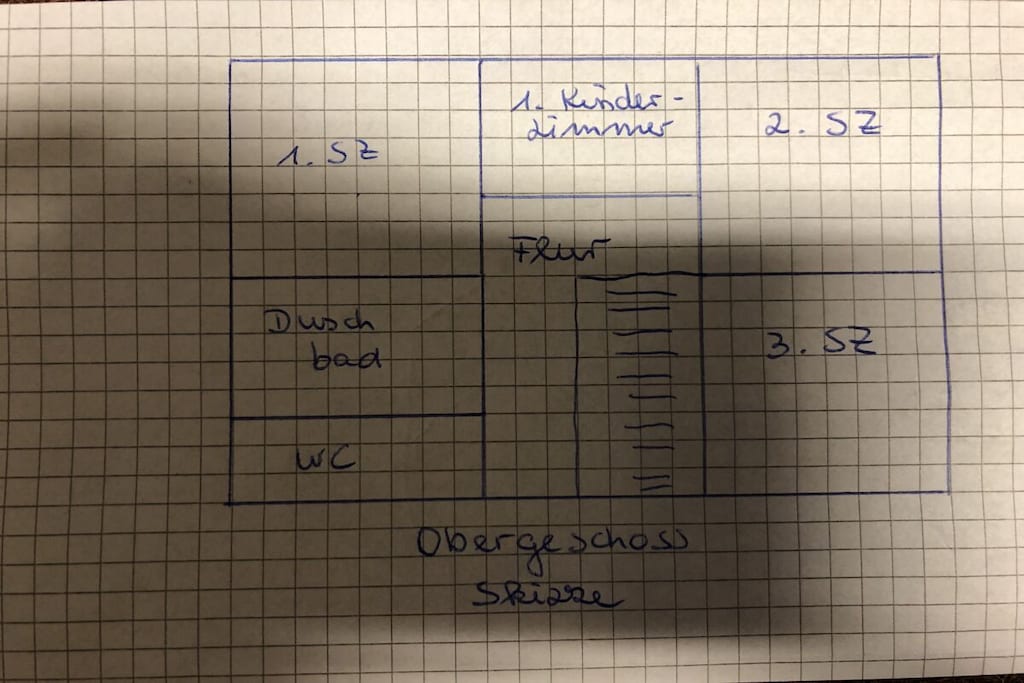 1. Kinder-
zimmer
2. SZ
1. SZ
Flur
Dusch
bad
3. SZ
WC
Obergeschoss
Skizze